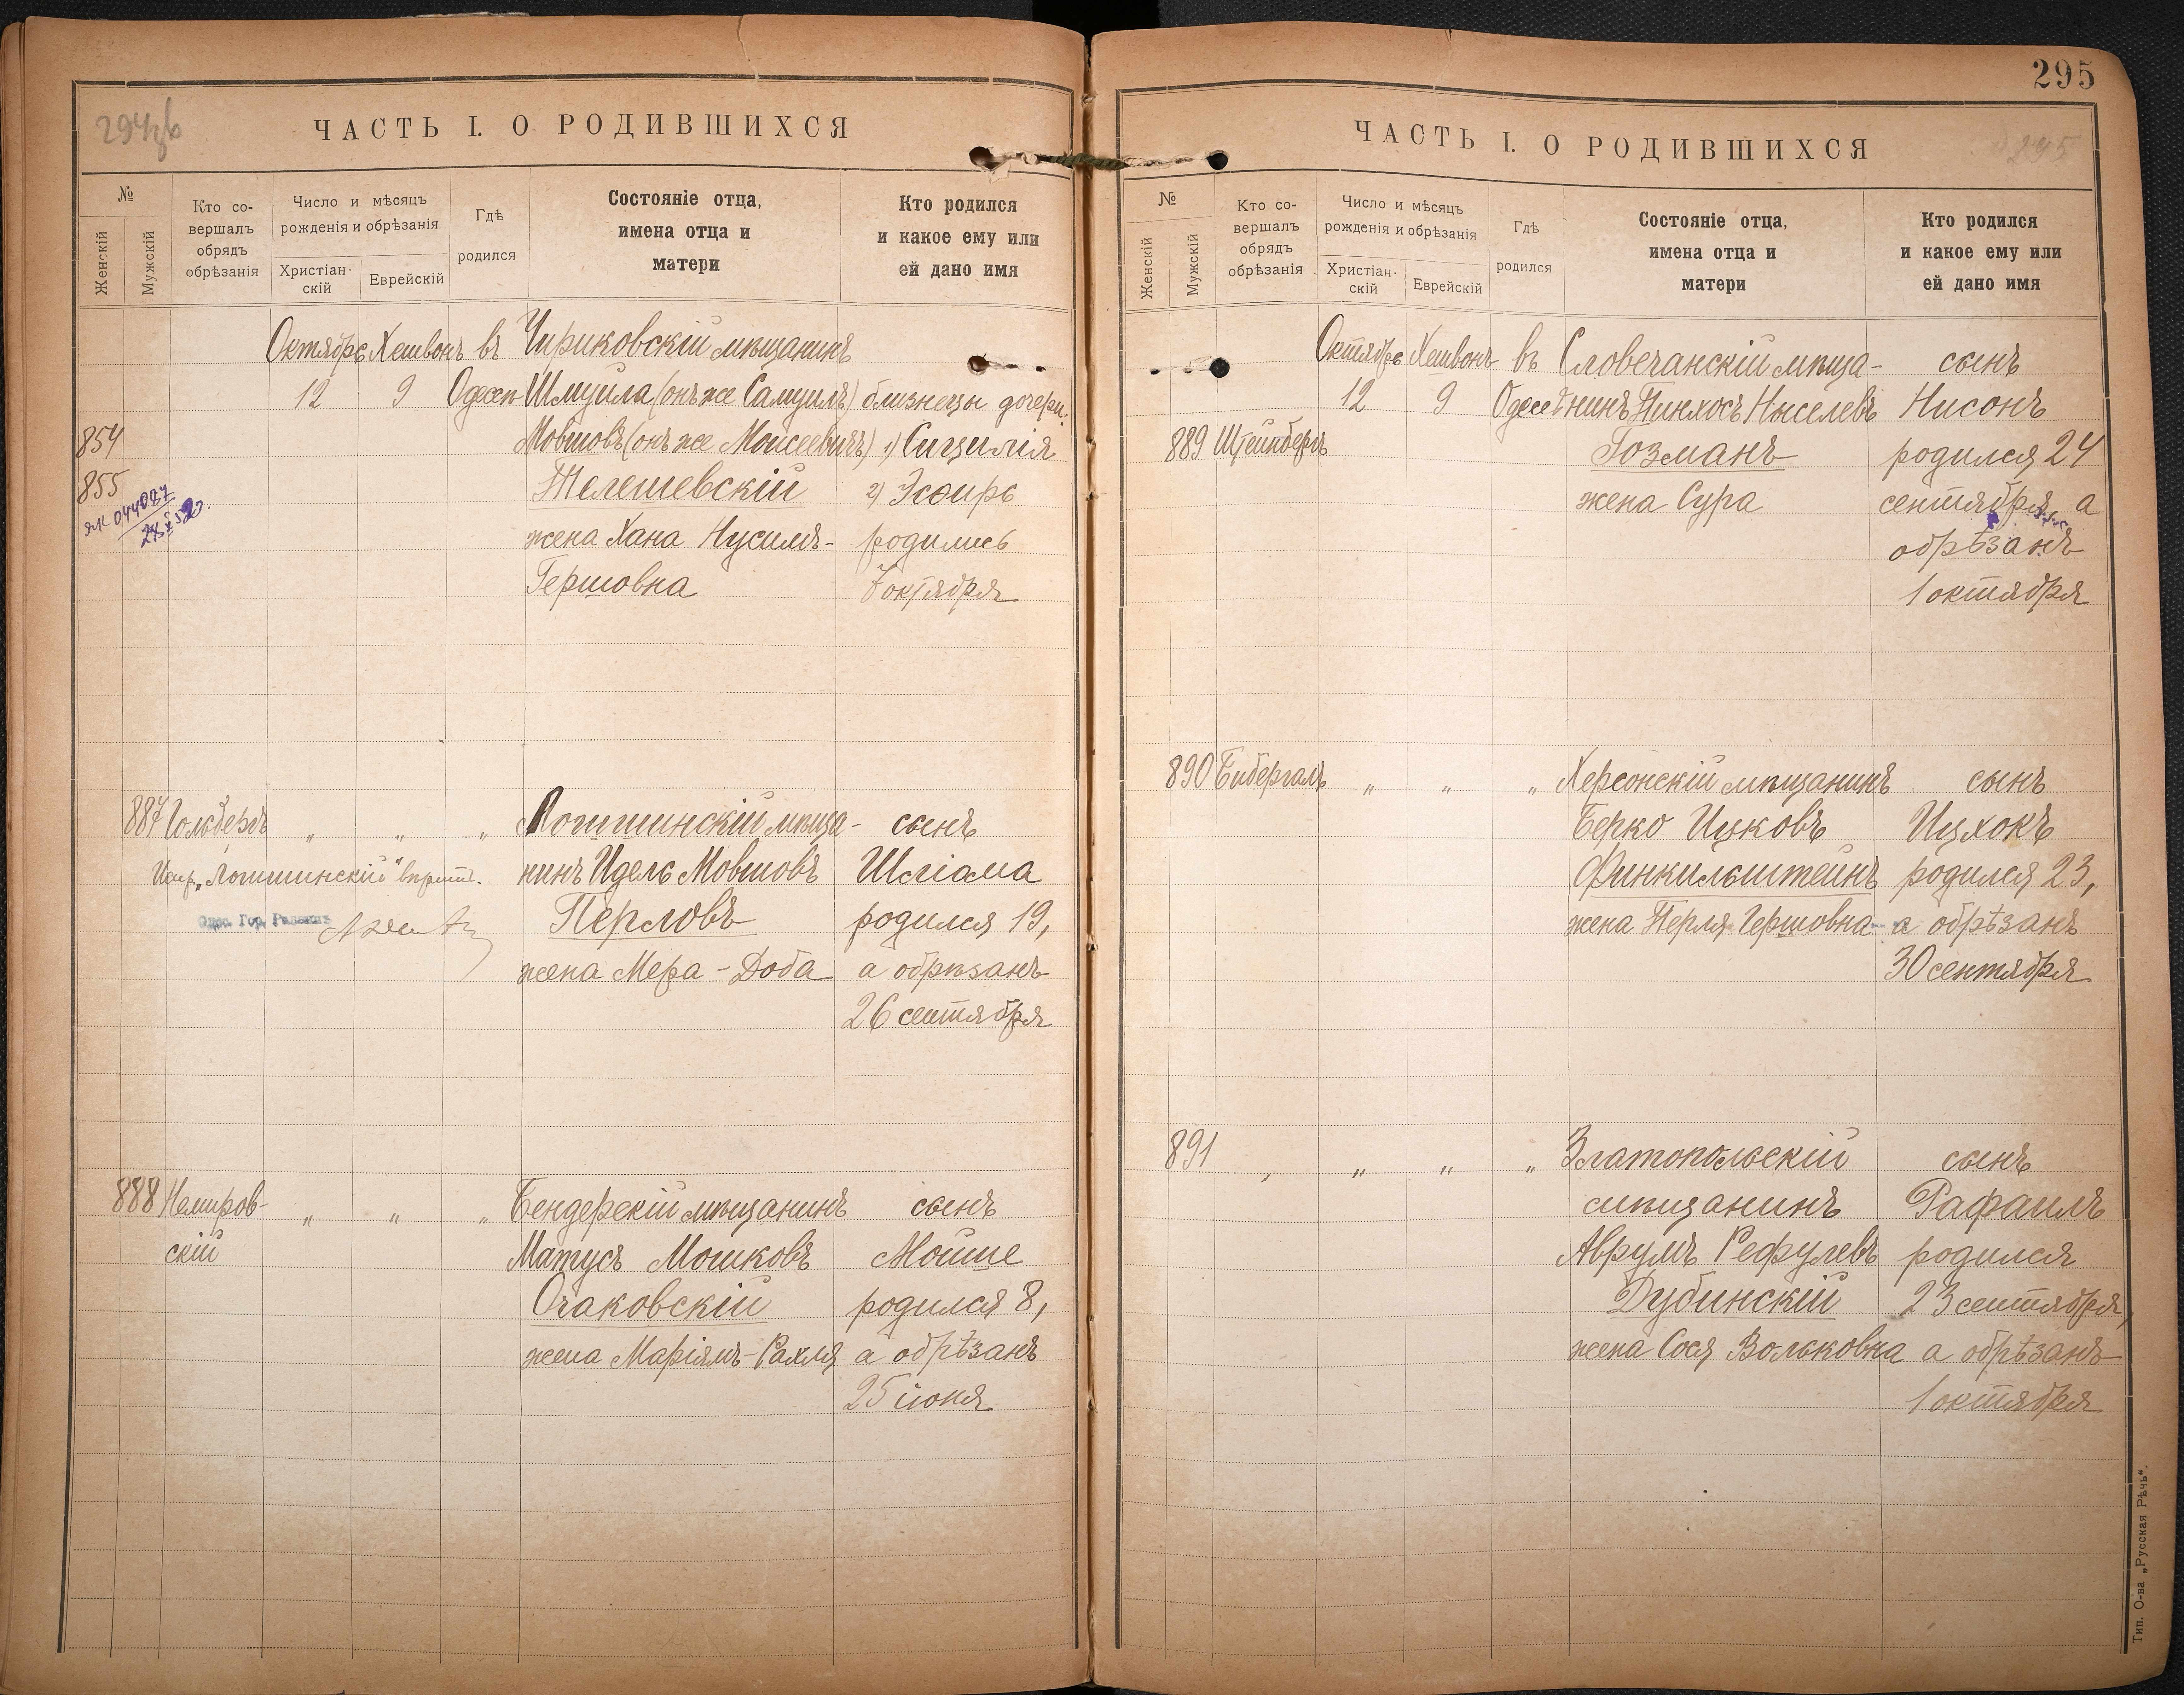 294об
ЧАСТЬ I. О РОДИВШИХСЯ
№
Женскій
Мужскій
Кто со-
вершалъ
обрядъ
обрѣзанія
Число и мѣсяцъ
рожденія и обрѣзанія
Христіан-
скій
Еврейскій
Гдѣ
родился
Состояніе отца,
имена отца и
матери
Кто родился
и какое ему или
ей дано имя
Октябрь Хешвонъ въ Чириковскій мѣщанинъ
12 9 Одессѣ Шмуила (онъ же Самуилъ) близнецы дочери:
854 Мовшовъ (онъ же Моисеевичъ) 1) Сицилія
855 Телешевскій 2) Эсѳирь
ЯК 044087
жена Хана Нусимъ- родились
Гершовна 7 октября
887 Гольдберъ „ „ „ Логишинскій мѣща- сынъ
Испр. „Логишинскій" вѣрить. нинъ Идель Мовшовъ Шліома
Одес. Гор. Раввинъ Перловъ родился 19,
жена Мера-Доба а обрѣзанъ
26 сентября
888 Немиров- „ „ „ Бендерскій мѣщанинъ сынъ
скій Матусъ Мошковъ Мойше
Очаковскій родился 8,
жена Маріямъ-Рахля а обрѣзанъ
25 іюня
295
ЧАСТЬ I. О РОДИВШИХСЯ
295
№
Женскій
Мужскій
Кто со-
вершалъ
обрядъ
обрѣзанія
Число и мѣсяцъ
рожденія и обрѣзанія
Христіан-
скій
Еврейскій
Гдѣ
родился
Состояніе отца,
имена отца и
матери
Кто родился
и какое ему или
ей дано имя
Октябрь Хешвонъ въ Словечанскій мѣща- сынъ
12 9 Одессѣ нинъ Пинхосъ Ныселевъ Нисонъ
889 Штейнбергъ Гозманъ родился 24
жена Сура сентября, а
обрѣзанъ
1 октября
890 Бибергалъ „ „ „ Херсонскій мѣщанинъ сынъ
Берко Ицковъ Ицхокъ
Финкильштейнъ родился 23,
жена Перля Гершовна а обрѣзанъ
30 сентября
891 „ „ „ „ Златопольскій сынъ
мѣщанинъ Рафаилъ
Аврумъ Рефулевъ родился
Дубинскій 23 сентября,
жена Сося Вольковна а обрѣзанъ
1 октября
Тип. О-ва „Русская Рѣчь".